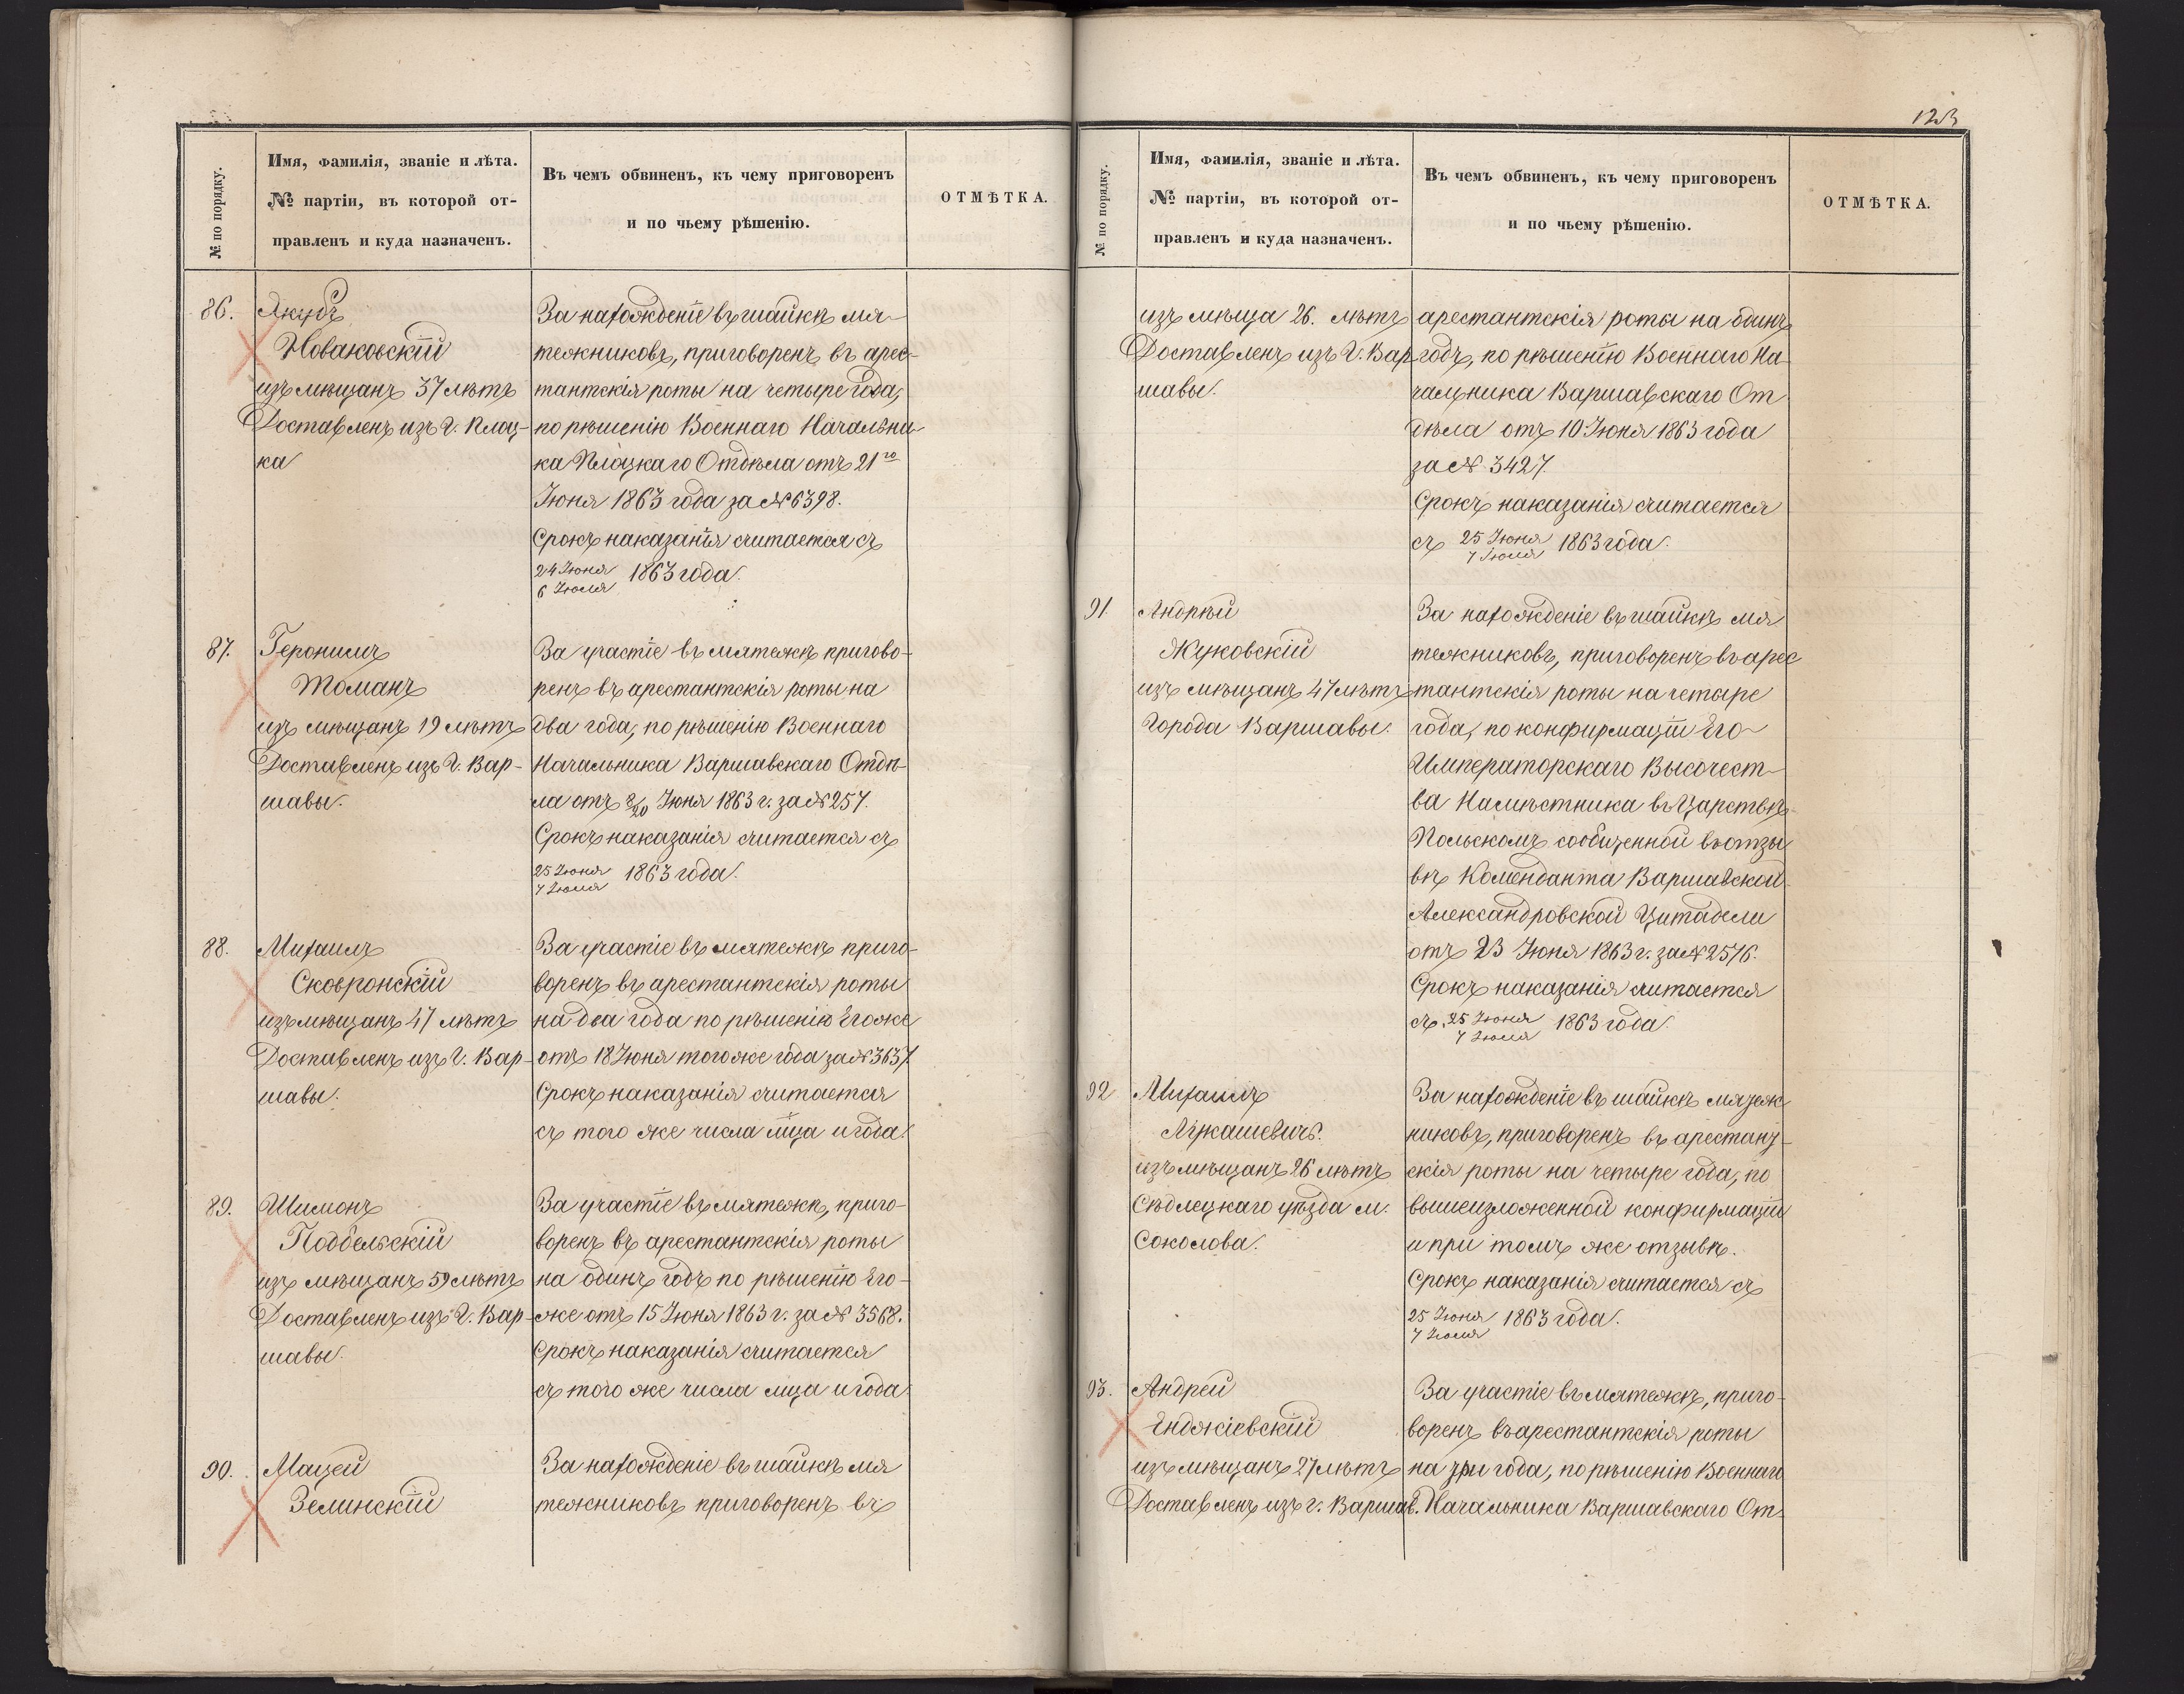 № по порядку.
Имя, фамилія, званіе и лѣта.
№ партіи, въ которой от-
правленъ и куда назначенъ.
Въ чемъ обвиненъ, къ чему приговоренъ
и по чьему рѣшенію.
ОТМѢТКА.
86.
Якубъ
Новаковскій
изъ мѣщанъ 37 лѣтъ
Доставленъ изъ Г. Плоц-
ка
За нахожденіе въ шайкѣ мя-
тежниковъ, приговоренъ въ арес-
тантскія роты на четыре года,
по рѣшенію Военнаго Начальни-
ка Плоцкаго Отдѣла отъ 21го
Іюня 1863 года за № 6398.
Срокъ наказанія считается съ
24 Іюня / 6 Іюля 1863 года.
87.
Геронимъ
Томанъ
изъ мѣщанъ 19 лѣтъ
Доставленъ изъ Г. Вар-
шавы.
За участіе въ мятежѣ пригово-
ренъ въ арестантскія роты на
два года, по рѣшенію Военнаго
Начальника Варшавскаго Отдѣ-
ла отъ 8/20 Іюня 1863 г. за № 257.
Срокъ наказанія считается съ
25 Іюня / 7 Іюля 1863 года.
88.
Михаилъ
Сковронскій
изъ мѣщанъ 47 лѣтъ
Доставленъ изъ Г. Вар-
шавы.
За участіе въ мятежѣ приго-
воренъ въ арестантскія роты
на два года по рѣшенію Егоже
отъ 18 Іюня того же года за № 3637.
Срокъ наказанія считается
съ того же числа мца и года.
89.
Шимонъ
Подбельскій
изъ мѣщанъ 59 лѣтъ
Доставленъ изъ Г. Вар-
шавы.
За участіе въ мятежѣ, приго-
воренъ въ арестантскія роты
на одинъ годъ по рѣшенію Его-
же отъ 15 Іюня 1863 г. за № 3568.
Срокъ наказанія считается
съ того же числа мца и года.
90.
Мацей
Зелинскій
За нахожденіе въ шайкѣ мя
тежниковъ приговоренъ въ
123
№ по порядку.
Имя, фамилія, званіе и лѣта.
№ партіи, въ которой от-
правленъ и куда назначенъ.
Въ чемъ обвиненъ, къ чему приговоренъ
и по чьему рѣшенію.
ОТМѢТКА.
изъ мѣща 26. лѣтъ
Доставленъ изъ Г. Вар
шавы.
арестантскія роты на одинъ
годъ, по рѣшенію Военнаго На
чальника Варшавскаго От
дѣла отъ 10 Іюня 1863 года
за № 3427.
Срокъ наказанія считается
съ 25 Іюня / 7 Іюля 1863 года.
91.
Андрѣй
Жуковскій
изъ мѣщанъ 47 лѣтъ
Города Варшавы.
За нахожденіе въ шайкѣ мя
тежниковъ, приговоренъ въ арес
тантскія роты на четыре
года, по конфирмаціи Его
Императорскаго Высочест-
ва Намѣстника въ Царствѣ
Польскомъ сообщенной въ отзы
вѣ Коменданта Варшавской
Александровской Цитадели
отъ 23 Іюня 1863 г. за № 2576.
Срокъ наказанія считается
съ 25 Іюня / 7 Іюля 1863 года.
92
Михаилъ
Лукашевичъ.
изъ мѣщанъ 26 лѣтъ
Сѣдлецкаго уѣзда м.
Соколова.
За нахожденіе въ шайкѣ мятеж
никовъ, приговоренъ въ арестант-
скія роты на четыре года, по
вышеизложенной конфирмаціи
и при томъ же отзывѣ.
Срокъ наказанія считается съ
25 Іюня / 7 Іюля 1863 года.
93.
Андрей
Енджіевскій
изъ мѣщанъ 27 лѣтъ
Доставленъ изъ г. Варшав.
За участіе въ мятежѣ, приго-
воренъ въ арестантскія роты
на три года, по рѣшенію Военнаго
Начальника Варшавскаго От-